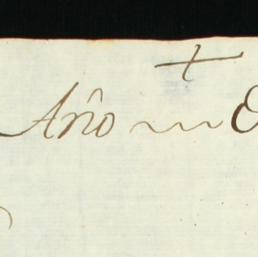 +
Año